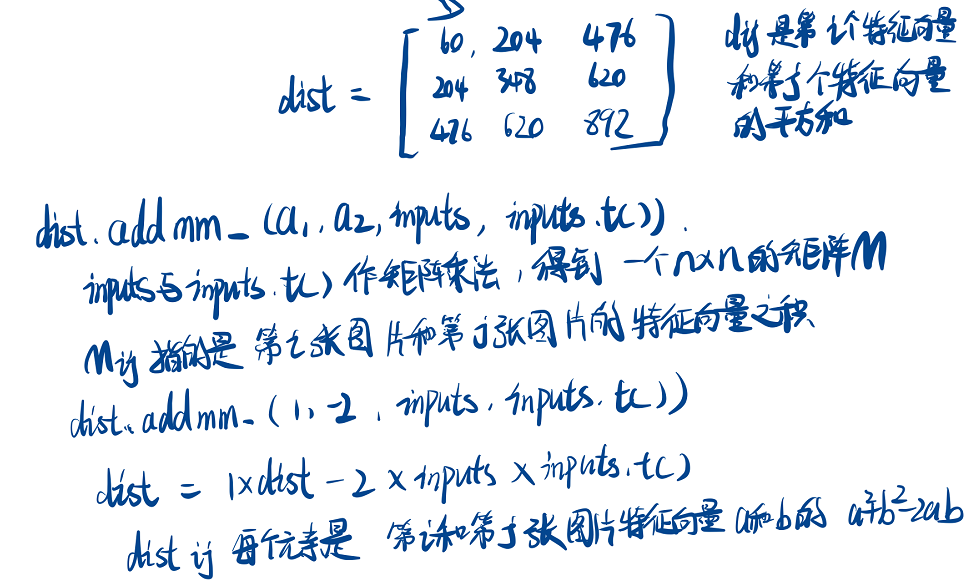 dist = [ 60, 204 476
204 348 620
476 620 892 ]
dij 是第i个特征向量
和第j个特征向量
的平方和
dist.addmm_(a1, a2, inputs, inputs.t())
inputs与inputs.t()作矩阵乘法,得到一个n×n的矩阵M
Mij 指的是 第i张图片和第j张图片的特征向量之积
dist.addmm_(1, -2, inputs, inputs.t())
dist = 1×dist - 2×inputs×inputs.t()
dist ij 每个元素是 第i和第j张图片特征向量a和b的 a²+b²-2ab